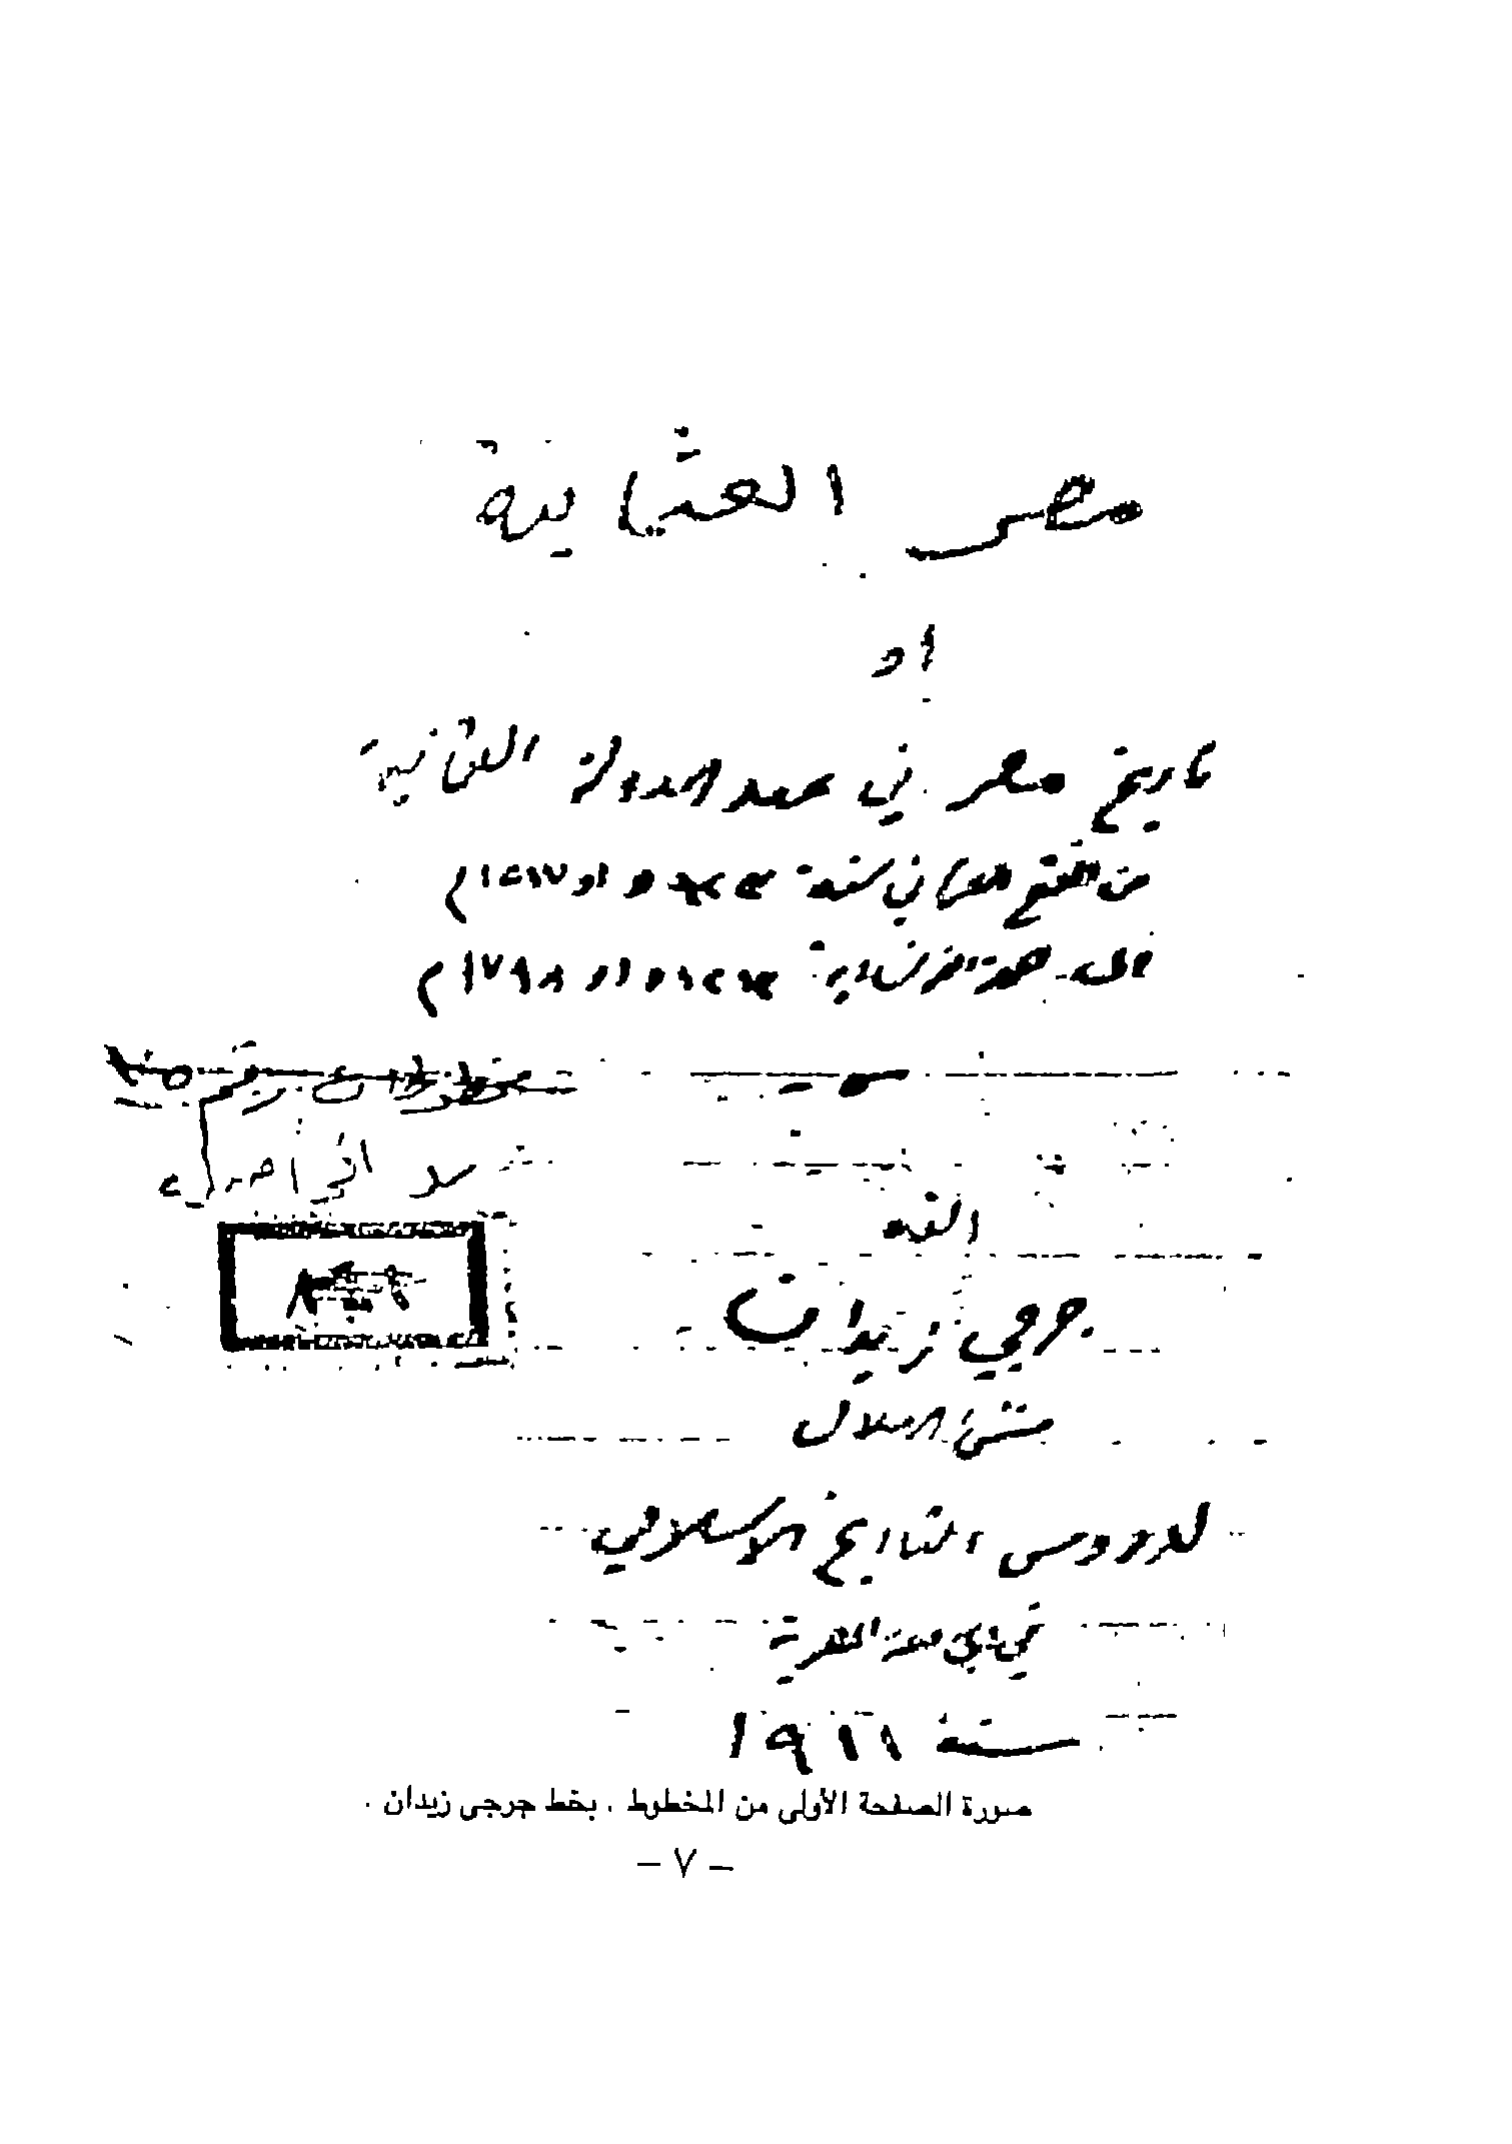 مصر العثمانية
او
تاريخ مصر في عهد الدولة العثمانية
من الفتح العثماني سنة ٩٢٣ ه او ١٥١٧ م
الى الحملة الفرنساوية ١٢١٣ ه او ١٧٩٨ م
مخطوطات رقم
الفه
جرجي زيدان
منشئ الهلال
لدروس التاريخ الاسلامي
في الجامعة المصرية
سنة ١٩١١
صورة الصفحة الأولى من المخطوط ، بخط جرجى زيدان .
– ٧ –